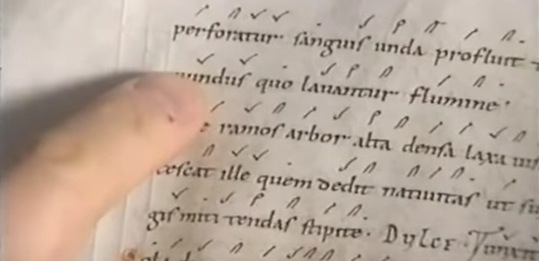 perforatur sanguis unda profluit
mundus quo lavantur flumine
ramos arbor alta densa laxa
ille quem dedit nativitas ut su
gis miti tendas stipite. Dulce